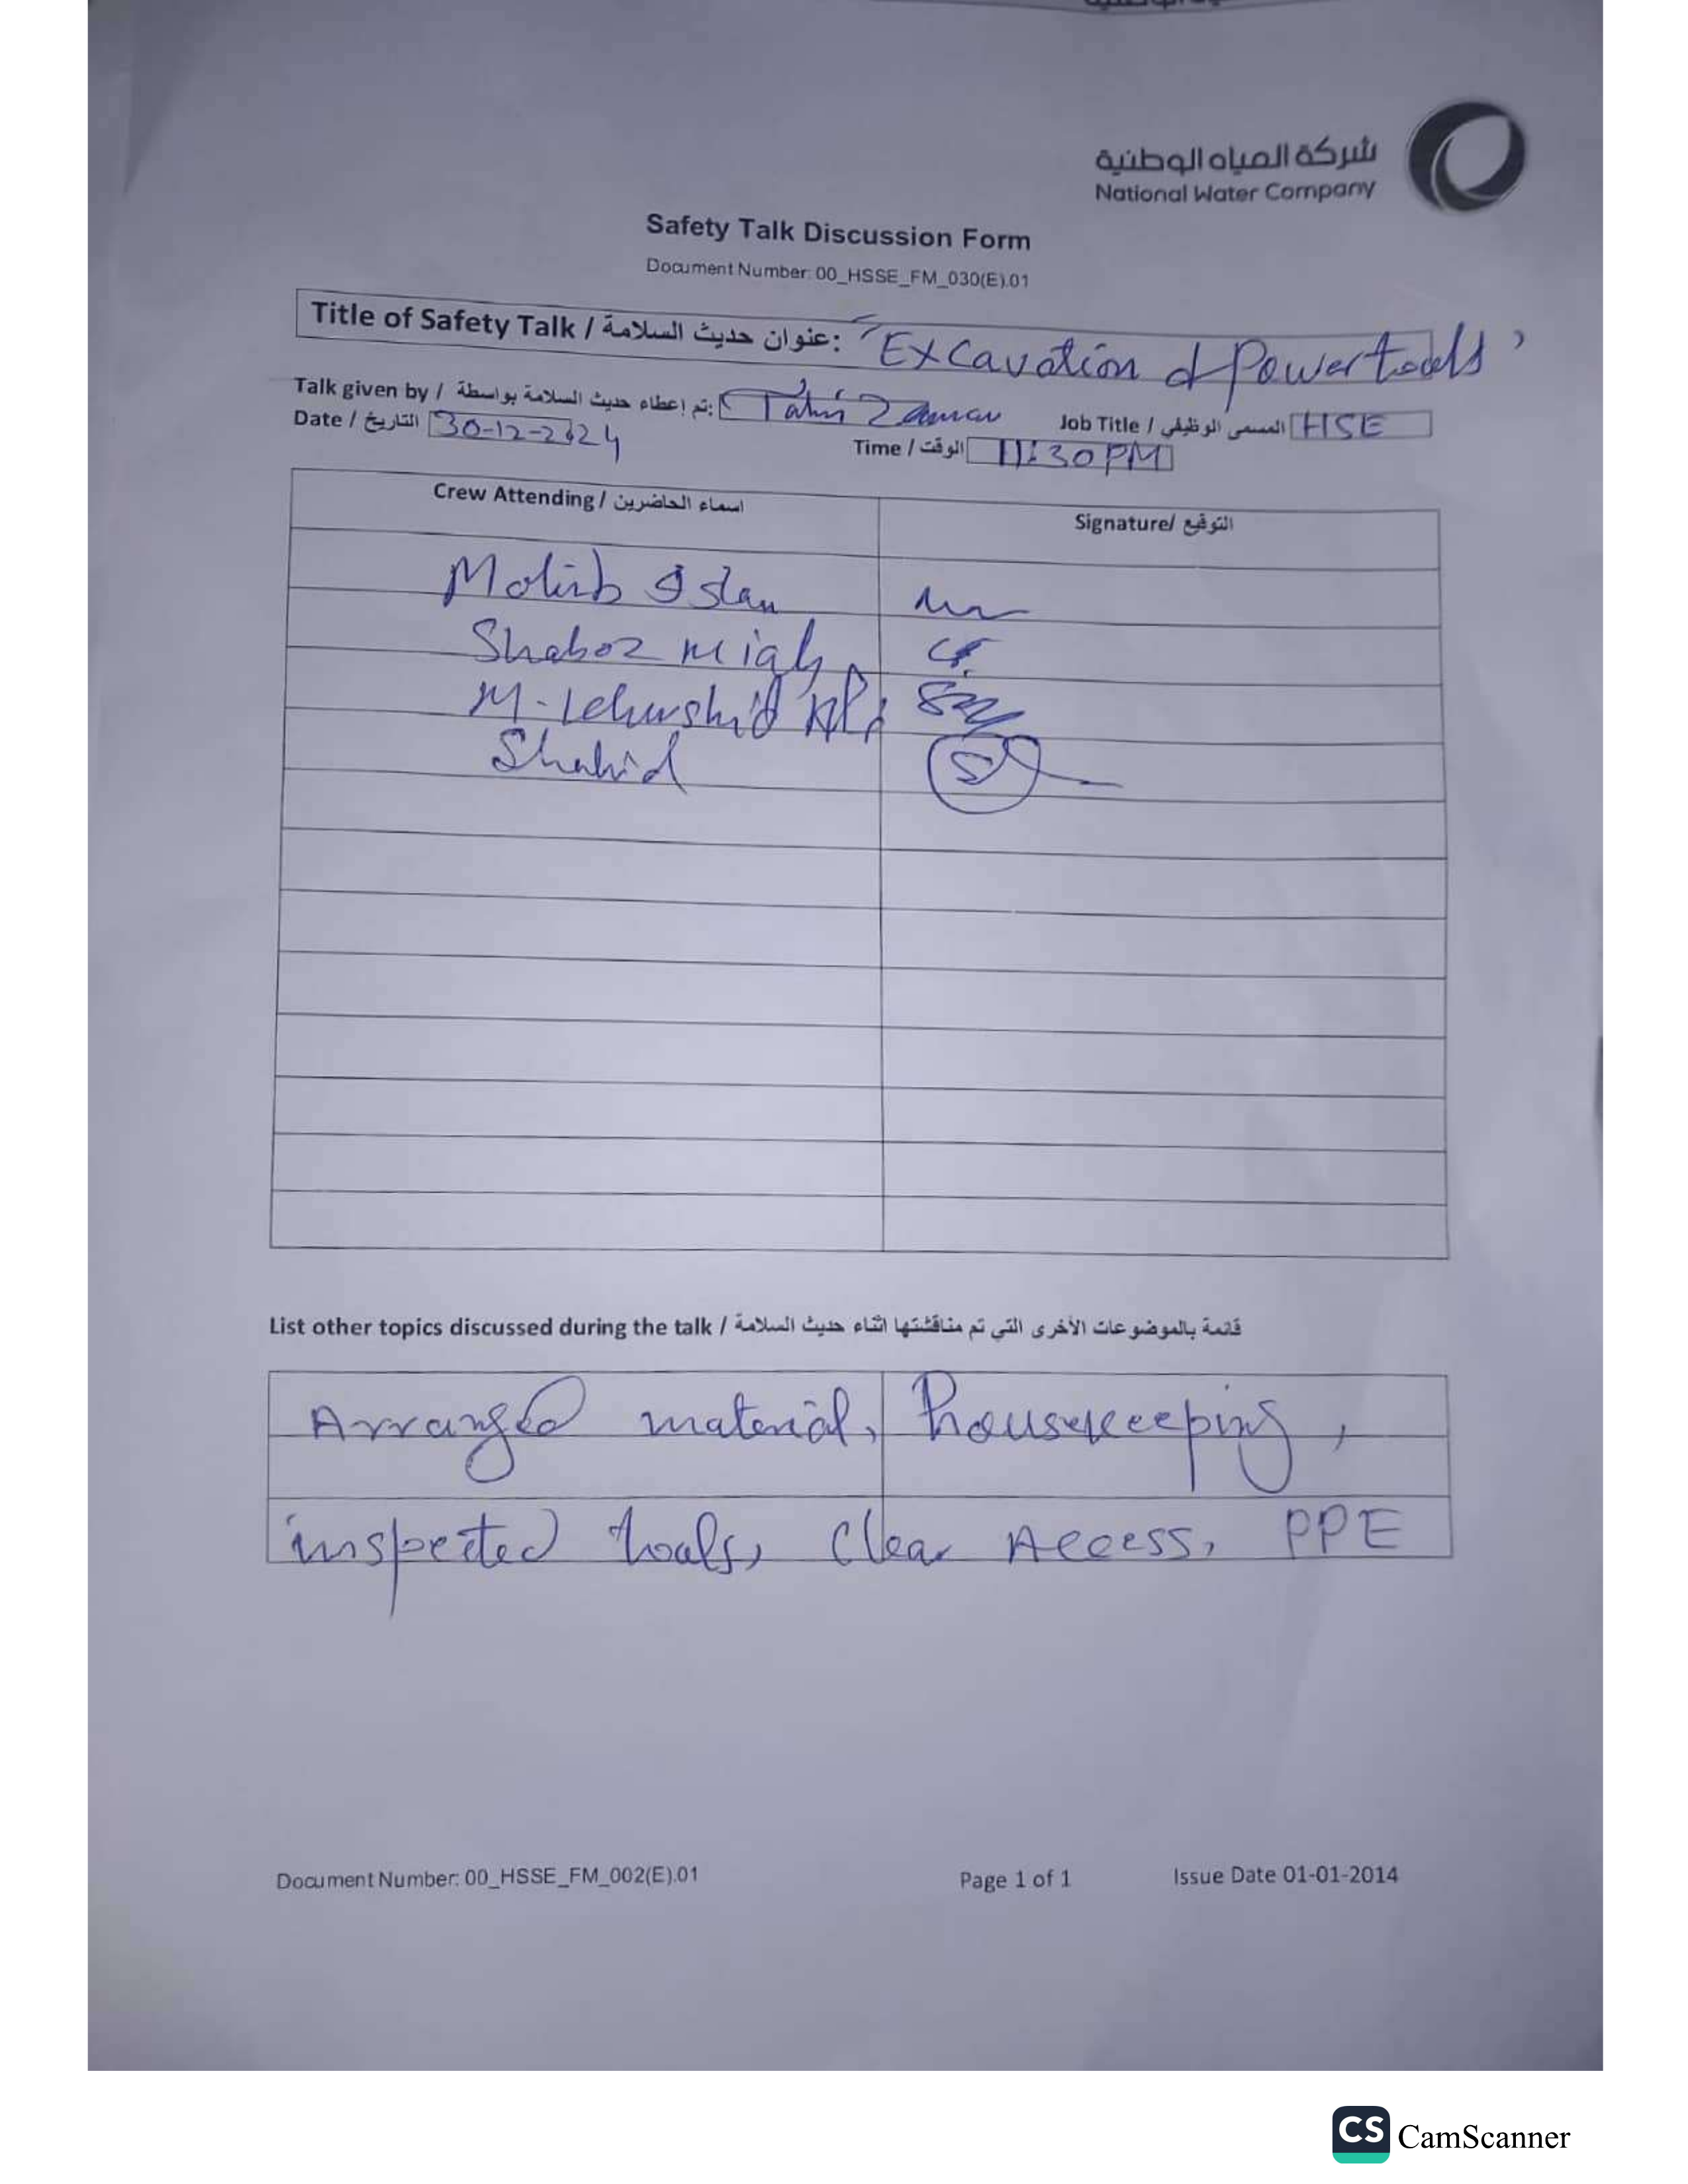 شركة المياه الوطنية
National Water Company
Safety Talk Discussion Form
Document Number: 00_HSSE_FM_030(E).01
Title of Safety Talk / عنوان حديث السلامة: "Excavation & Powertools"
Talk given by / تم إعطاء حديث السلامة بواسطة: Tahir Zaman Job Title / المسمى الوظيفي HSE
Date / التاريخ 30-12-2024 Time / الوقت 11:30PM
Crew Attending / اسماء الحاضرين Signature/ التوقيع
Mohib Islam
Shaboz miah
M. Khurshid
Shahid
List other topics discussed during the talk / قائمة بالموضوعات الأخرى التي تم مناقشتها اثناء حديث السلامة
Arranged material, housekeeping,
inspected tools, Clear Access, PPE
Document Number: 00_HSSE_FM_002(E).01 Page 1 of 1 Issue Date 01-01-2014
CS CamScanner